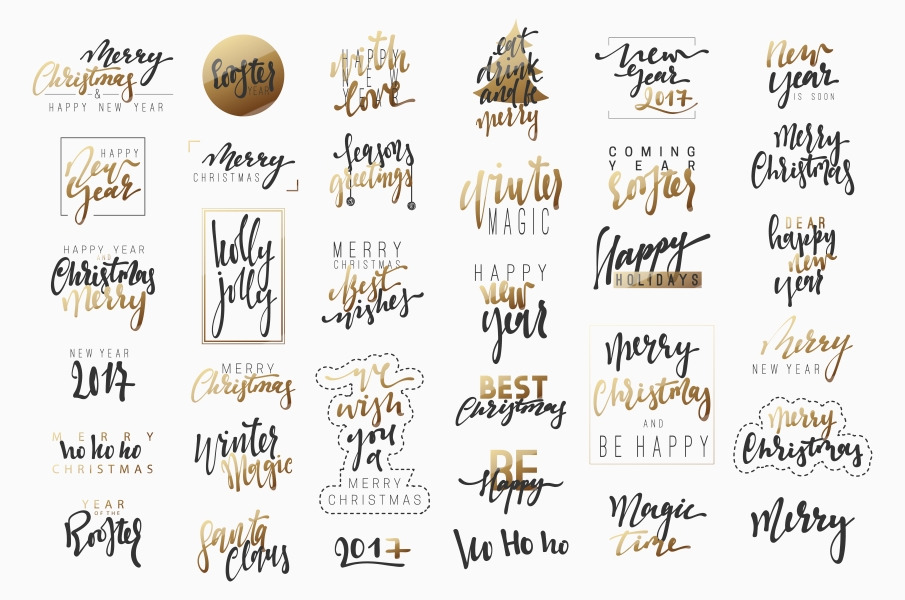 Merry
Christmas
&
HAPPY NEW YEAR
HAPPY
New
Year
HAPPY YEAR
AND
Christmas
Merry
NEW YEAR
2017
MERRY
ho ho ho
CHRISTMAS
YEAR
OF THE
Rooster
rooster
YEAR
Merry
CHRISTMAS
holly
jolly
MERRY
Christmas
Winter
Magic
Santa
Claus
with
HAPPY
NEW
YEAR
love
Seasons
greetings
MERRY
CHRISTMAS
Best
wishes
we
wish
you
a
MERRY
CHRISTMAS
2017
eat
drink
and be
merry
Winter
MAGIC
HAPPY
new
year
BEST
Christmas
BE
Happy
Ho Ho ho
New
Year
2017
COMING
YEAR
rooster
Happy
HOLIDAYS
Merry
Christmas
AND
BE HAPPY
Magic
time
New
year
IS SOON
Merry
Christmas
DEAR
happy
new
year
Merry
NEW YEAR
Merry
Christmas
Merry